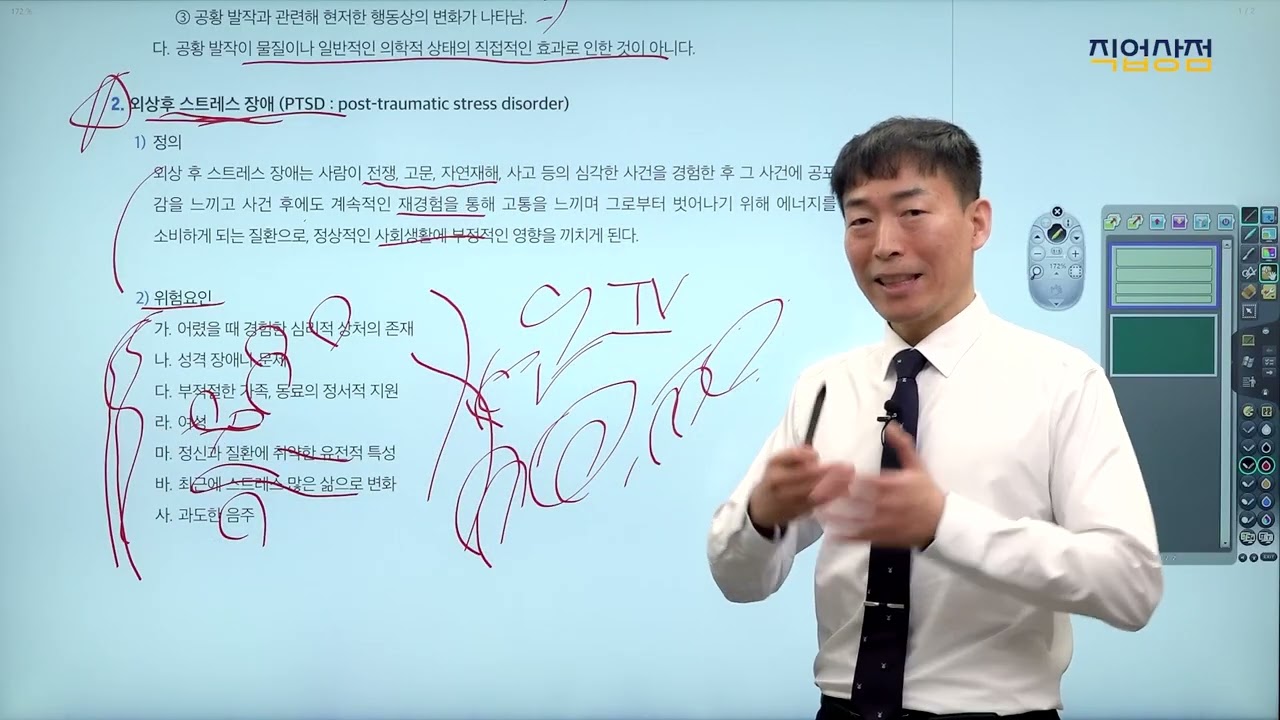 172 %
1 / 2
③ 공황 발작과 관련해 현저한 행동상의 변화가 나타남.
다. 공황 발작이 물질이나 일반적인 의학적 상태의 직접적인 효과로 인한 것이 아니다.
직업상점
2. 외상후 스트레스 장애 (PTSD : post-traumatic stress disorder)
1) 정의
외상 후 스트레스 장애는 사람이 전쟁, 고문, 자연재해, 사고 등의 심각한 사건을 경험한 후 그 사건에 공포
감을 느끼고 사건 후에도 계속적인 재경험을 통해 고통을 느끼며 그로부터 벗어나기 위해 에너지를
소비하게 되는 질환으로, 정상적인 사회생활에 부정적인 영향을 끼치게 된다.
172%
2) 위험요인
TV
가. 어렸을 때 경험한 심리적 상처의 존재
나. 성격 장애나 문제
다. 부적절한 가족, 동료의 정서적 지원
라. 여성
마. 정신과 질환에 취약한 유전적 특성
바. 최근에 스트레스 많은 삶으로 변화
사. 과도한 음주
EXIT